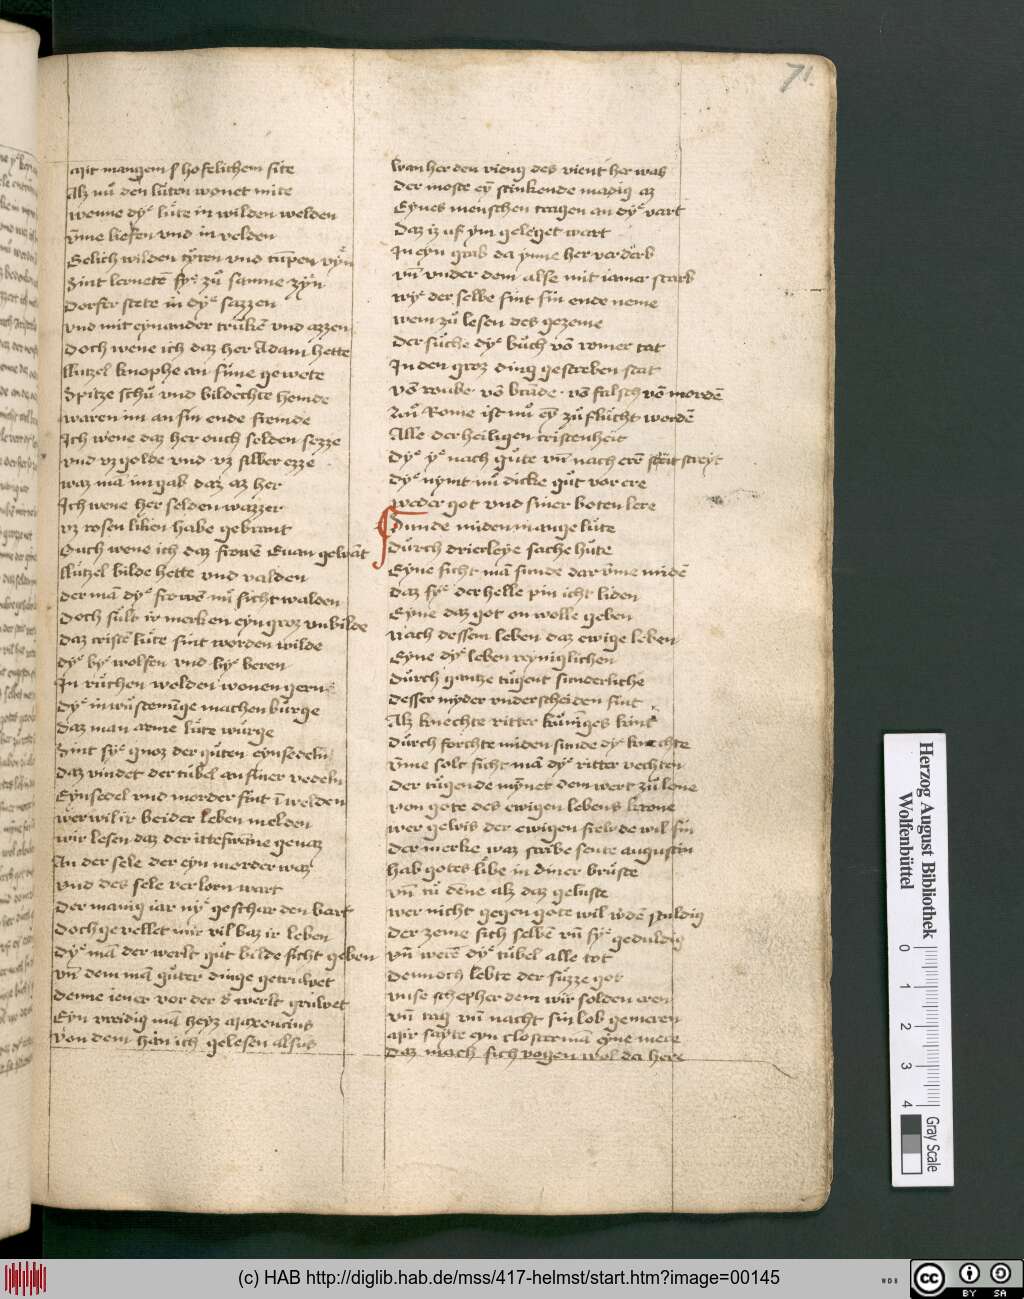 71
Mit mangem hofelichem site
Alz nů den lůten wonet mite
wenne dye lůte in wilden welden
ȳnne liefen vnd in velden
Gelich wilden tyren vnd
Sint lerneten sye zů samne zyn
Dorfer stete in dye sazzen
vnd mit eynander trůkē vnd azzen
Doch wene ich daz her Adam hette
Lůtzel knophe an sime gewete
Spitze schů vnd bildechte hemde
waren im an sin ende fremde
Ich wene daz her ouch selden sezze
vnd vz golde vnd vz silber ezze
waz mā im gab daz az her
Ich wene her selden wazzer
vz rosen liken habe gebrant
Ouch wene ich daz frowē Euan gebāt
Lůtzel bilde hette vnd valden
der mā dye frowē nů sicht walden
Doch sůlt ir merken eyn groz vnbilde
daz cristē lůte sint worden wilde
dye bye wolfen vnd bye beren
In růchen welden wonen gern
dye in wůstenůge machen bůrge
daz man arme lůte wůrge
Sint sye gnoz der gůten eynsedeln
daz vindet der tůbel an siner vedeln
Eynsedel vnd morder sint ī welden
wer wil ir beider leben melden
wir lesen daz der genaz
An der sele der eyn morder waz
vnd des sele verlorn wart
Der manig iar nye geschar den bart
Doch gevellet mir vil baz ir leben
Dye mā der werlt gůt bilde sicht geben
vn̄ dem mā gůter dinge getruwet
denne iener vor der d' werlt gruwet
Eyn vreidig mā heyz Maxencius
von dem han ich gelesen alsus
wan her den vieng des vient her was
Der moste ey̅ stinkende madig az
Eynes menschen tragen an dye vart
Daz iz uf ym geleget wart
In eyn grab da ynne her verdarb
vn̄ vnder dem alse mit iamer starb
wye der selbe sint sin ende neme
wem zů lesen des gezeme
Der sůche dye bůch vō romer tat
In den groz ding gescreben stat
vō roube vō brāde vō falsch vō mordē
Zců Rome ist nů ey̅ zů flůcht wordē
Alle der heiligen cristenheit
Dye ye nach gůte vn̄ nach erē streyt
Dye nymt nů dicke gůt vor ere
weder got vnd siner boten lere
Sunde miden mange lůte
Durch drierleye sache hůte
Eyne sicht mā sunde dar v̄me midē
daz sye der helle pin icht liden
Eyne daz got on wolle geben
Nach dessem leben daz ewige leben
Eyne dye leben reyniglichen
Durch gantze tůgent sunderliche
Desser myder vnderscheiden sint
Alz knechte ritter kůniges kint
Durch forchte miden sunde dye knechte
v̄me solt sicht mā dye ritter vechten
Der tůgende mȳnet dem wert zů lone
von gote des ewigen lebens krone
wer gewis der ewigen frewde wil sin
Der merke waz scribe sente augustin
hab gotes libe in diner brůste
vn̄ tů dēne alz daz geluste
wer nicht gegen gote wil w'den schuldig
Der zeme sich selbē vn̄ sye geduldig
vn̄ werē dye tůbel alle tot
Dennoch lebte der sůzze got
vnse schepher dem wir solden eren
vn̄ tag vn̄ nacht sin lob gemeren
Mir sayte eyn clostermā eyne mere
daz mach sich vogen wol da here
Herzog August Bibliothek
Wolfenbüttel
0
1
2
3
4
Gray Scale
(c) HAB http://diglib.hab.de/mss/417-helmst/start.htm?image=00145
WDB
cc BY SA